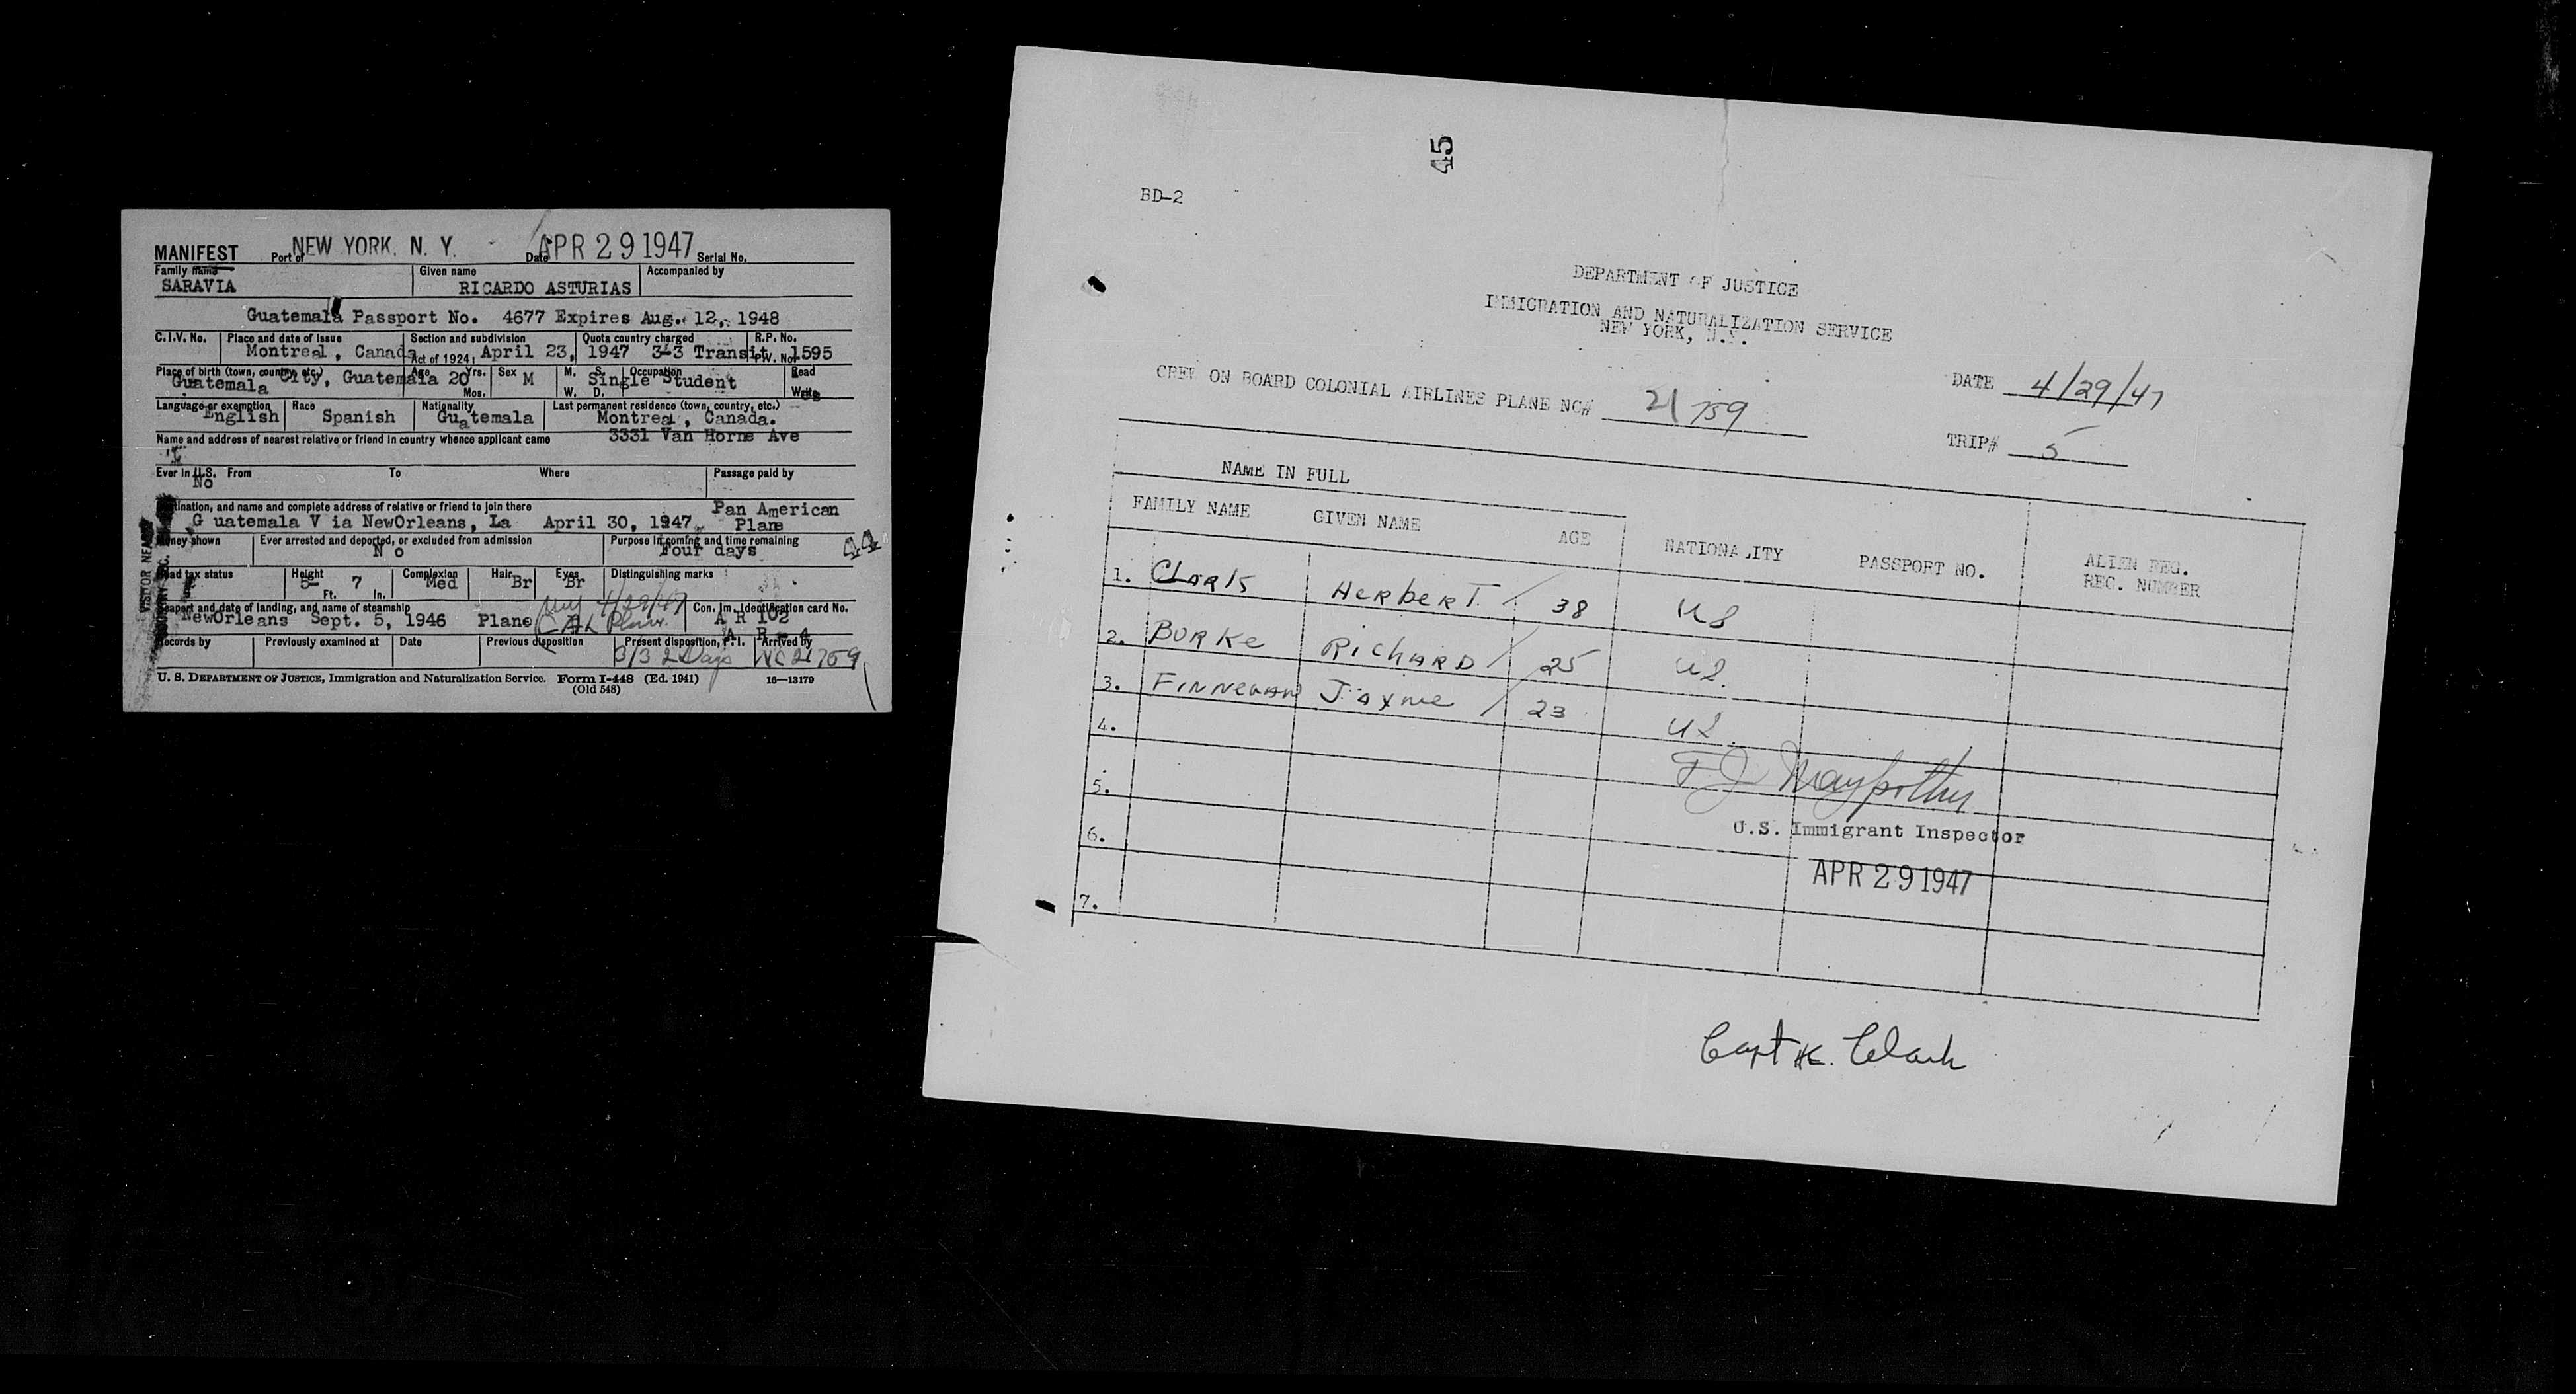 MANIFEST Port of NEW YORK, N. Y. Date APR 29 1947 Serial No.
Family name Given name Accompanied by
SARAVIA RICARDO ASTURIAS
Guatemala Passport No. 4677 Expires Aug. 12, 1948
C.I.V. No. Place and date of issue Section and subdivision Quota country charged R.P. No.
Montreal, Canada Act of 1924: April 23, 1947 3-3 Transit P.W. No. 1595
Place of birth (town, country, etc.) Age Yrs. Sex M M. S. Occupation Read
Guatemala City, Guatemala 20 Mos. W. D. Single Student Write
Language or exemption Race Nationality Last permanent residence (town, country, etc.)
English Spanish Guatemala Montreal, Canada.
Name and address of nearest relative or friend in country whence applicant came 3331 Van Horne Ave
Ever in U.S. From To Where Passage paid by
No
Destination, and name and complete address of relative or friend to join there Pan American
Guatemala V ia NewOrleans, La April 30, 1947. Plane
Money shown Ever arrested and deported, or excluded from admission Purpose in coming and time remaining
N o Four days 44
Head tax status Height Complexion Hair Eyes Distinguishing marks
5- Ft. 7 In. Med Br Br
Seaport and date of landing, and name of steamship 4/29/47 Con. Im. Identification card No.
NewOrleans Sept. 5, 1946 Plane CAL Plane A R 102
A R - 4
Records by Previously examined at Date Previous disposition Present disposition, P.I. Arrived by
3/3 2 Days NC 21759
U. S. DEPARTMENT OF JUSTICE, Immigration and Naturalization Service. Form I-448 (Ed. 1941) 16—13179
(Old 548)
45
BD-2
DEPARTMENT OF JUSTICE
IMMIGRATION AND NATURALIZATION SERVICE
NEW YORK, N.Y.
DATE 4/29/47
CREW ON BOARD COLONIAL AIRLINES PLANE NC# 21759
TRIP# 5
NAME IN FULL
FAMILY NAME GIVEN NAME AGE NATIONALITY PASSPORT NO. ALIEN REG.
REC. NUMBER
1. Clark Herbert 38 US
2. Burke Richard 25 US.
3. Finnegan Jayne 23 US.
4.
5.
U.S. Immigrant Inspector
6.
APR 29 1947
7.
Capt H. Clark